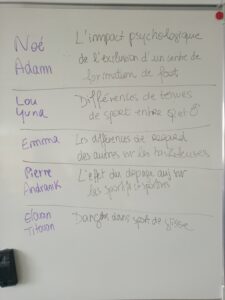 Noé
Adam
L'impact psychologique
de l'exclusion d'un centre de
formation de foot
Lou
Yuna
Différences de tenues
de sport entre ♀ et ♂
Emma
Les différences de regard
des autres sur les
Pierre
Andranik
L'effet du dopage sur
les sportifs
Titouan
Dangers dans sport de glisse